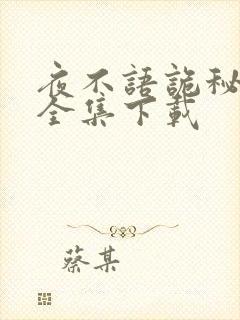 夜不語詭秘
全集下載
蔡某